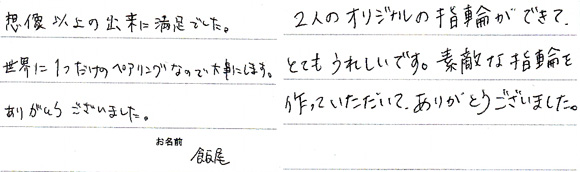 想像以上の出来に満足でした。
世界に1つだけのペアリングなので大事にします。
ありがとうございました。
お名前
飯尾
2人のオリジナルの指輪ができて、
とてもうれしいです。素敵な指輪を
作っていただいて、ありがとうございました。